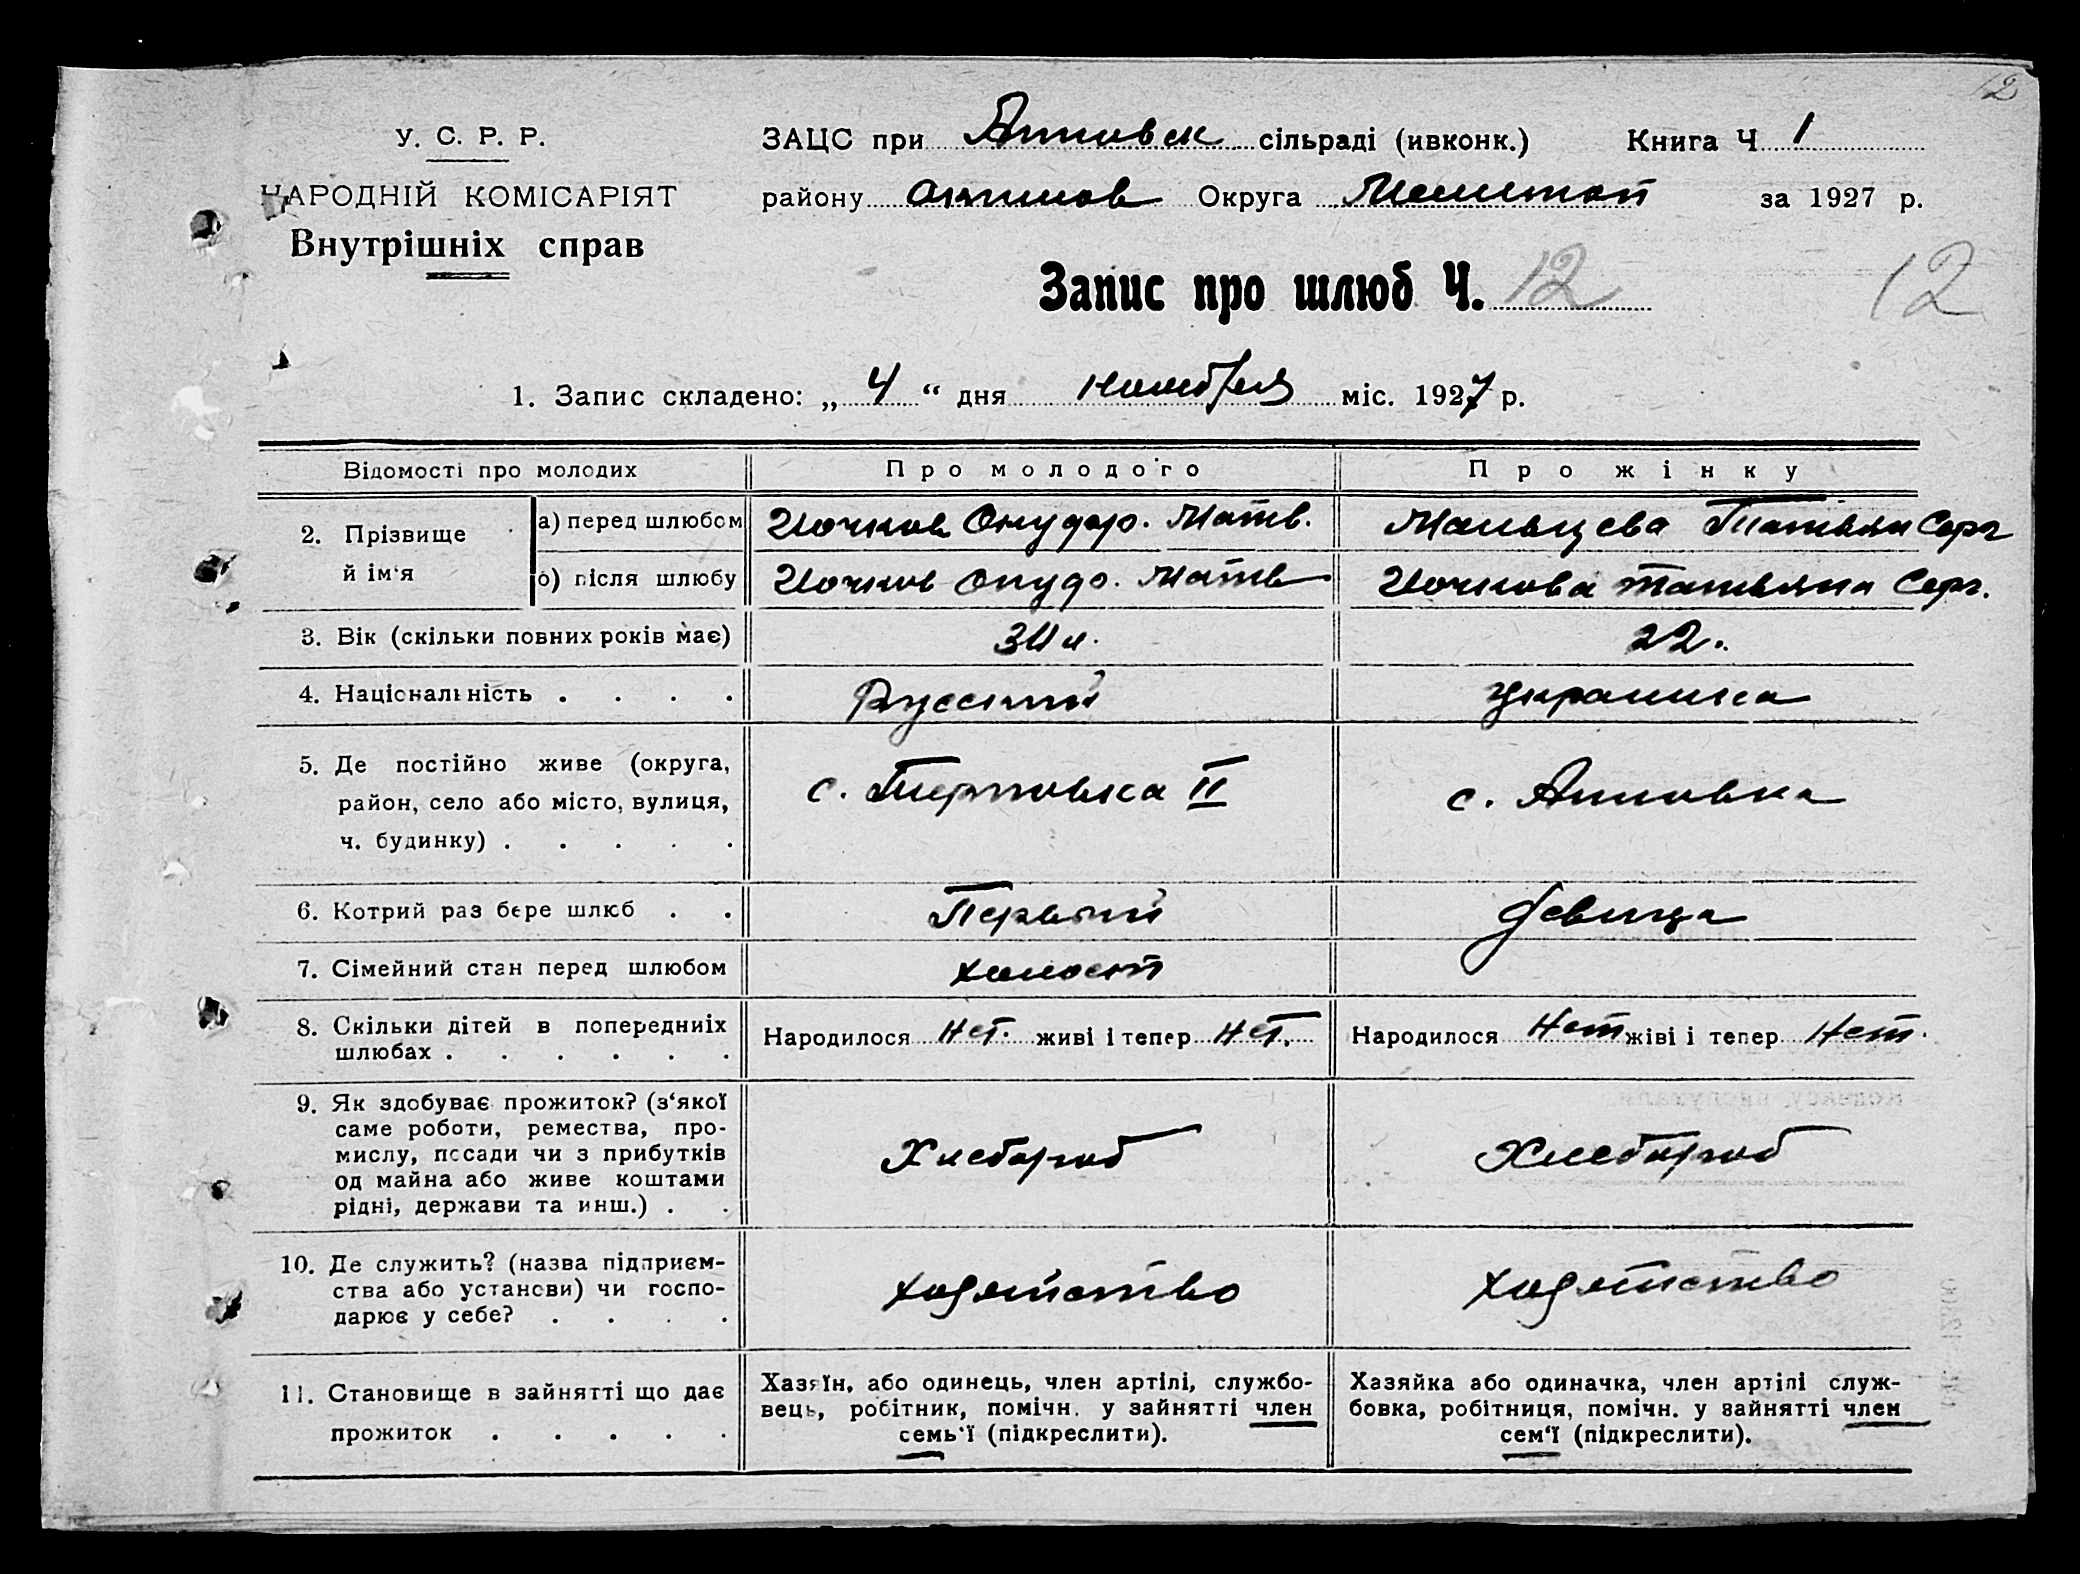 12
У. С. Р. Р.
НАРОДНІЙ КОМІСАРІЯТ
Внутрішніх справ
ЗАЦС при Анновск сільраді (ивконк.) Книга Ч 1
району Акимов Округа Мелитоп за 1927 р.
Запис про шлюб Ч. 12
12
1. Запис складено: „ 4 “ дня ноября міс. 1927 р.
Відомості про молодих Про молодого Про жінку
2. Прізвище й ім‘я
а) перед шлюбом Матв. Мальцева Татьяна Серг
б) після шлюбу Матв Татьяна Серг.
3. Вік (скільки повних років має) 22.
4. Національність . . . . Русский украинка
5. Де постійно живе (округа, район, село або місто, вулиця, ч. будинку) . . . . .
с. II с. Анновка
6. Котрий раз бере шлюб . . Первый девица
7. Сімейний стан перед шлюбом холост
8. Скільки дітей в попередниіх шлюбах . . . . . .
Народилося нет. живі і тепер нет. Народилося Нет жіві і тепер Нет.
9. Як здобуває прожиток? (з‘якої саме роботи, ремества, про-
мислу, посади чи з прибутків
од майна або живе коштами
рідні, держави та инш.) . .
Хлебороб Хлебороб
10. Де служить? (назва підприєм-
ства або установи) чи госпо-
дарює у себе? . . . .
11. Становище в зайнятті що дає
прожиток . . . . .
Хазяїн, або одинець, член артілі, службо-
вець, робітник, помічн. у зайнятті член
семь‘ї (підкреслити).
Хазяйка або одиначка, член артілі служ-
бовка, робітниця, помічн. у зайнятті член
сем‘ї (підкреслити).